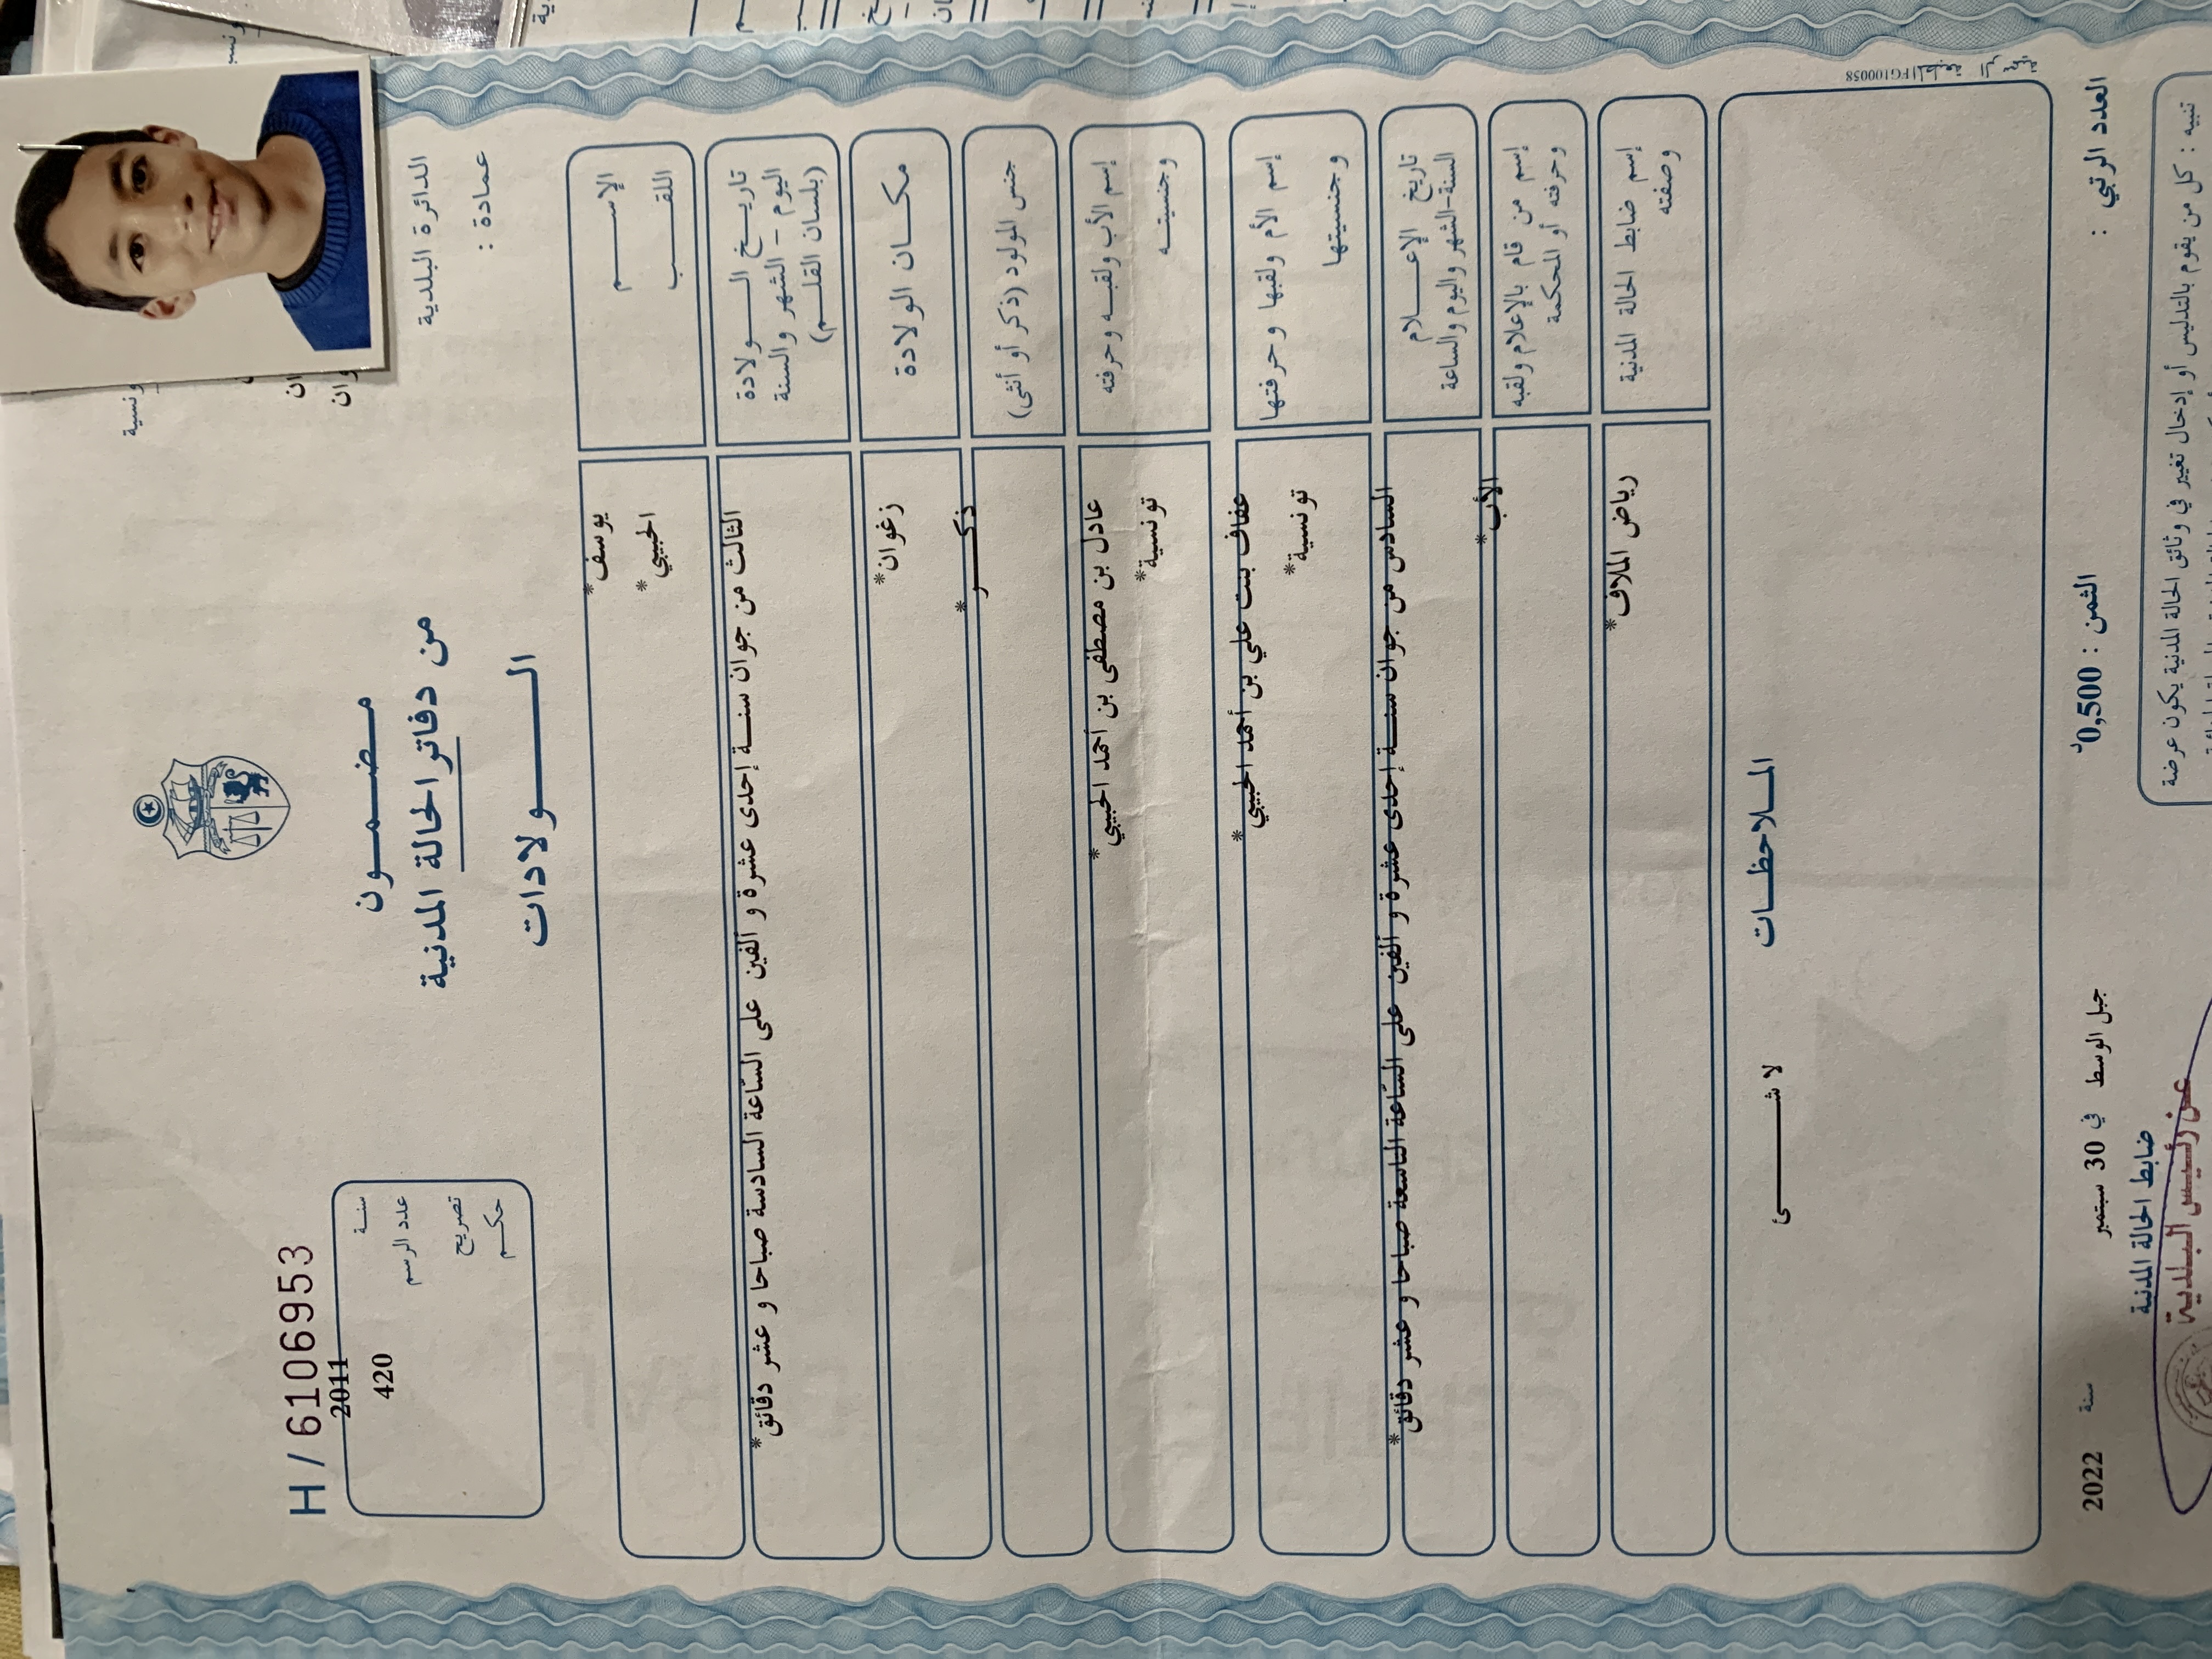 H / 6106953
مضمون
من دفاتر الحالة المدنية
الولادات
الدائرة البلدية
عمادة :
سنة 2011
عدد الرسم 420
تصريح
حكم
الإسم يوسف*
اللقب الحبيبي*
تاريخ الولادة
اليوم - الشهر والسنة
(بلسان القلم)
الثالث من جوان سنة إحدى عشرة و ألفين على السّاعة السادسة صباحا و عشر دقائق*
مكان الولادة زغوان*
جنس المولود (ذكر أو أنثى) ذكر*
إسم الأب ولقبه وحرفته عادل بن مصطفى بن أحمد الحبيبي*
وجنسيته تونسية*
إسم الأم ولقبها وحرفتها عفاف بنت علي بن أحمد الحبيبي*
وجنسيتها تونسية*
تاريخ الإعلام
السنة-الشهر واليوم والساعة
السادس من جوان سنة إحدى عشرة و ألفين على السّاعة التاسعة صباحا و عشر دقائق*
إسم من قام بالإعلام ولقبه
وحرفته أو المحكمة
الأب*
إسم ضابط الحالة المدنية
وصفته
رياض الملاف*
الملاحظات
لا شئ
FG100058
العدد الرتبي :
الثمن : 0,500د
جبل الوسط في 30 سبتمبر سنة 2022
ضابط الحالة المدنية
عن رئيس البلدية
تنبيه : كل من يقوم بالتدليس أو إدخال تغيير في وثائق الحالة المدنية يكون عرضة